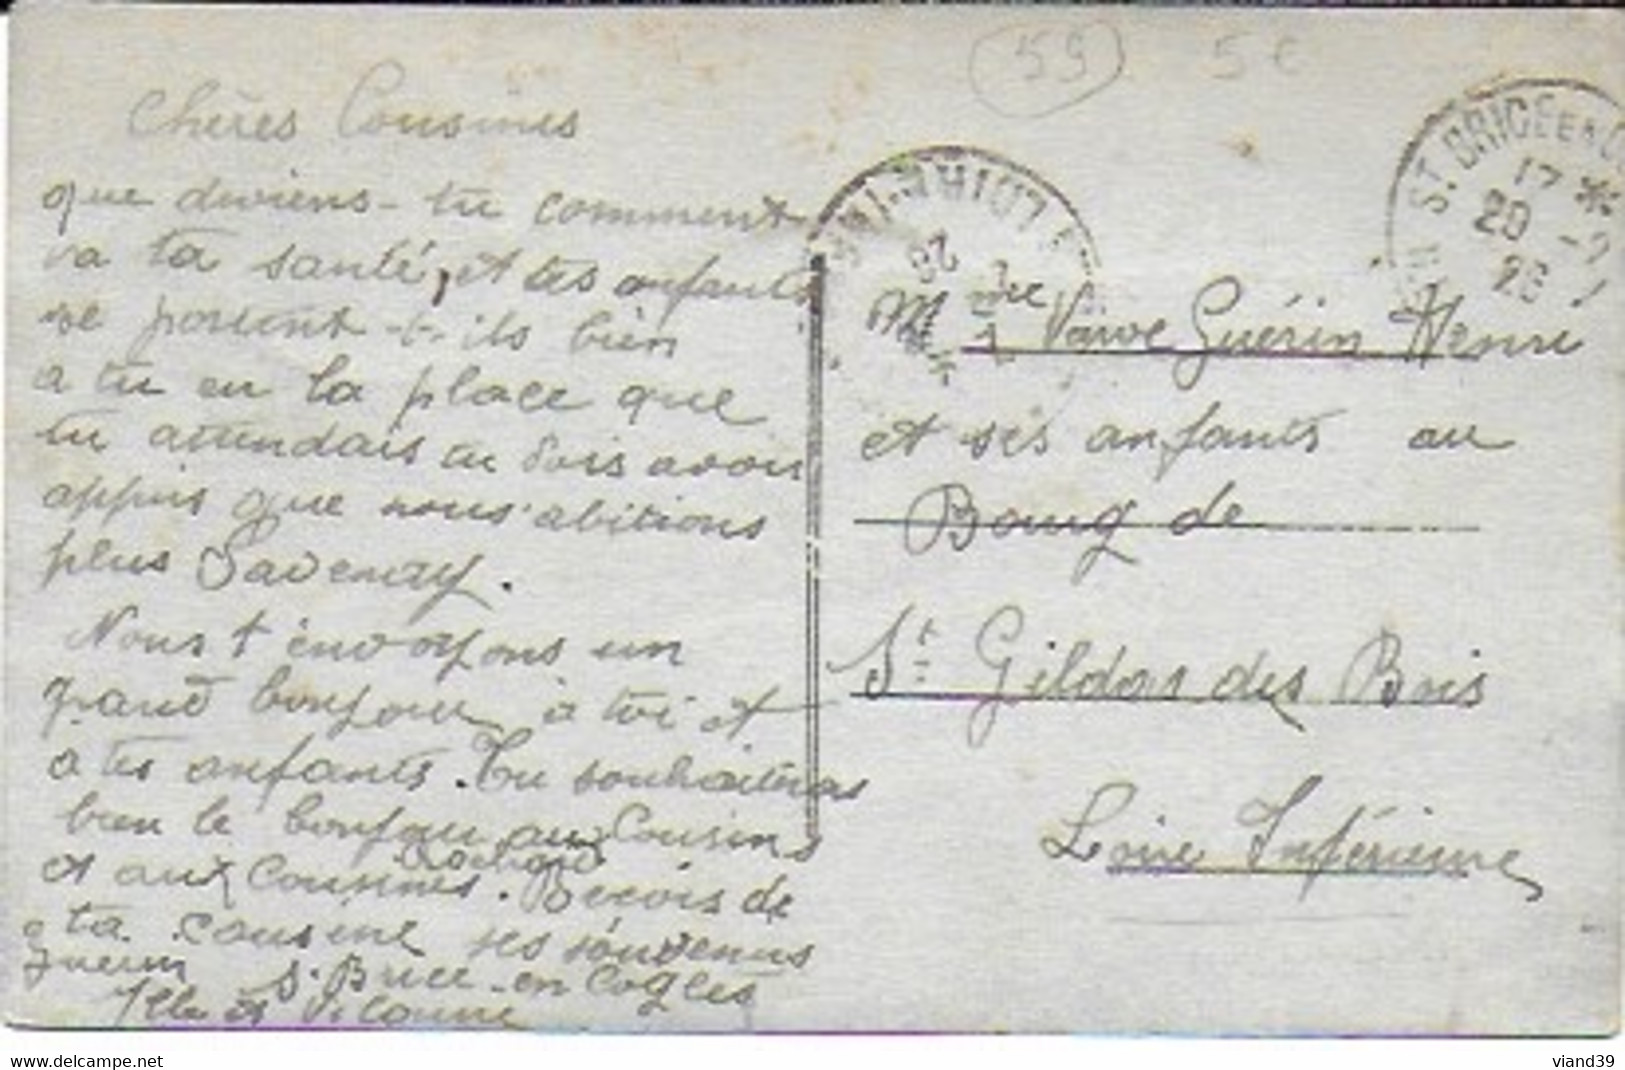 59
5 €
Chères Cousines
que diviens-tu comment
va ta santé, et tes anfants
se porsent-t-ils bien
a tu eu la place que
tu attendais tu dois avoir
appris que nous abitions
plus Savenay.
Nous t'envoyons un
grand bonjour à toi et
a tes anfants. Tu souhaiteras
bien le bonjour aux Cousins
et aux Cousines. Recois de
ta cousine ses souvenus
Guerin St Brice-en Cogles
Ille et Vilainne
ST. BRICE EN CO
12 *
20 -7
26
LOIRE-INF
26
Mme Vauve Guérin Henri
et ses anfants au
Bourg de
St Gildas des Bois
Loire Inférieure
delcampe.net
viand39